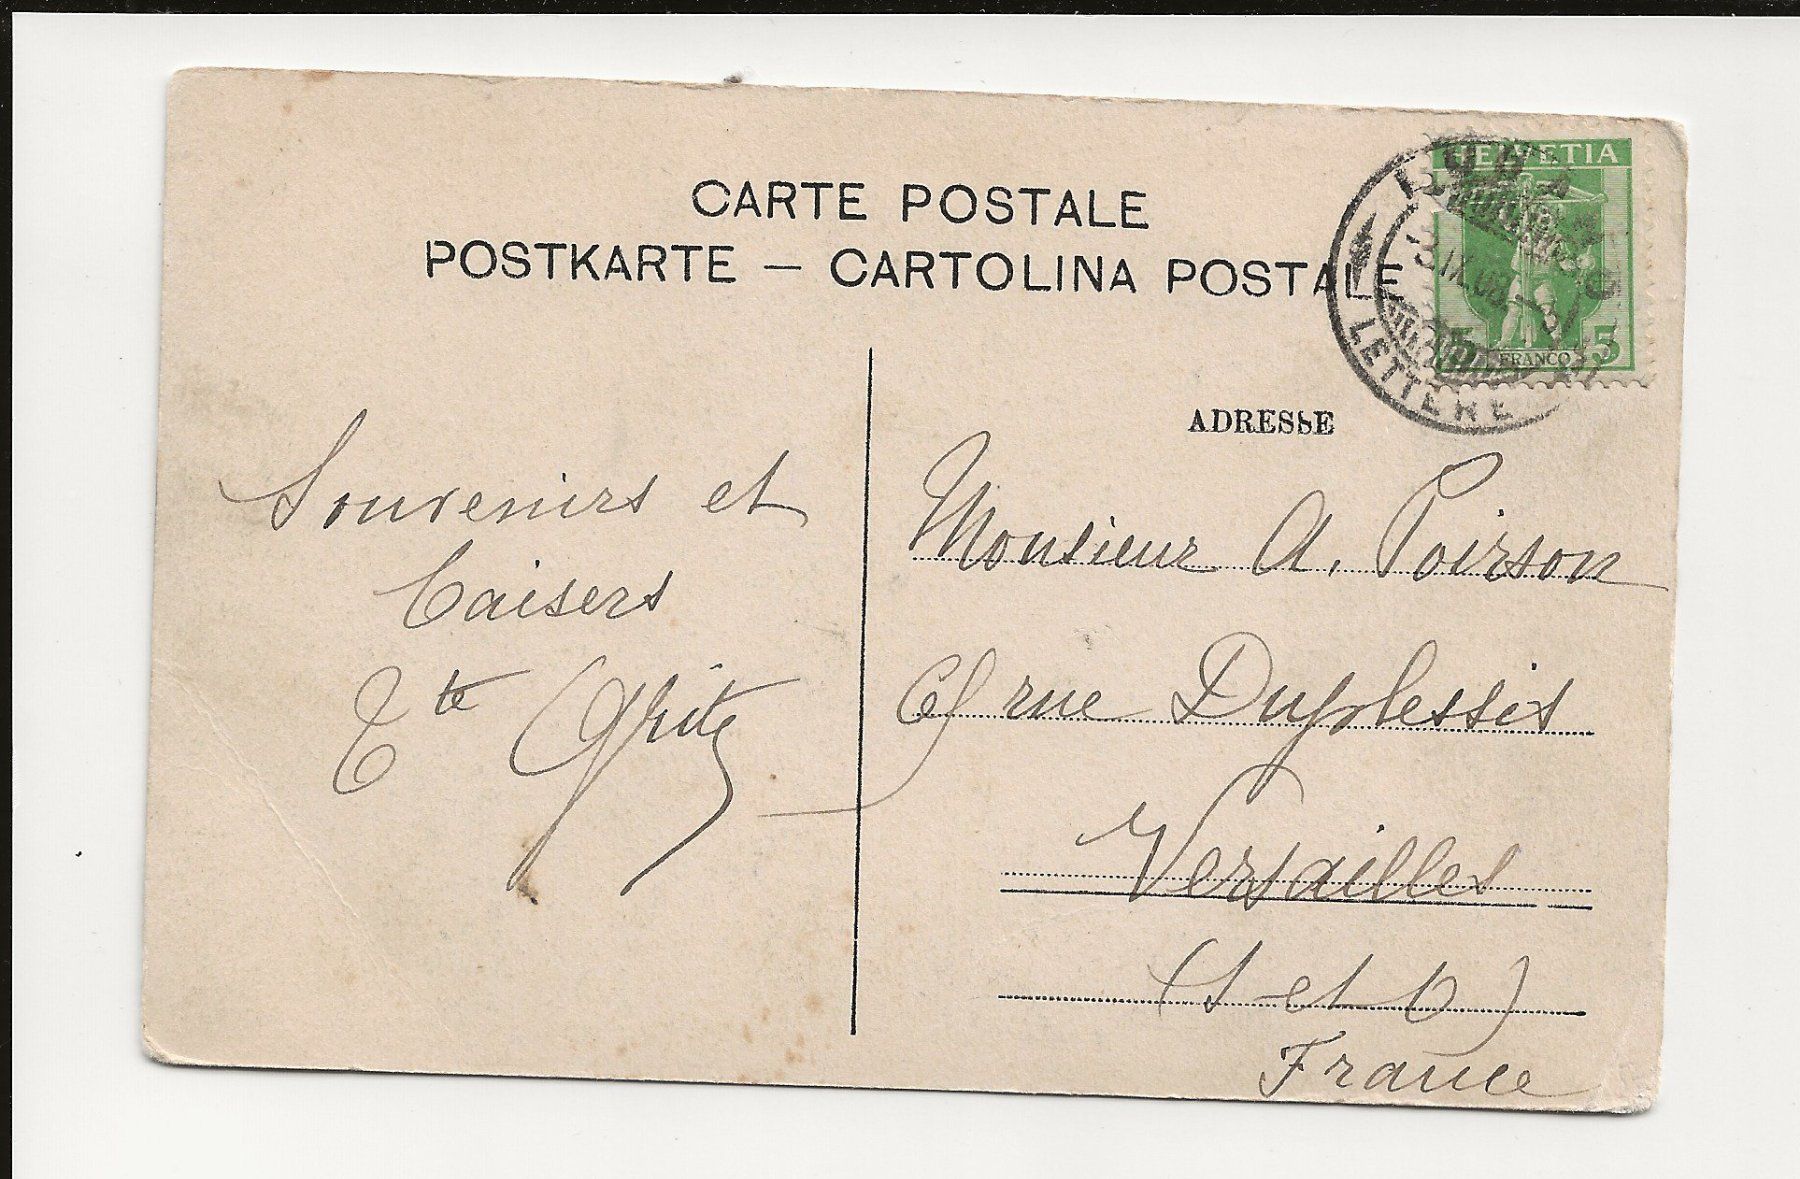 CARTE POSTALE
POSTKARTE — CARTOLINA POSTALE
HELVETIA
LUGANO
LETTERE
5 FRANCO 5
ADRESSE
Souvenirs et
baisers
Monsieur A. Poirson
rue Duplessis
Versailles
(S et O)
France